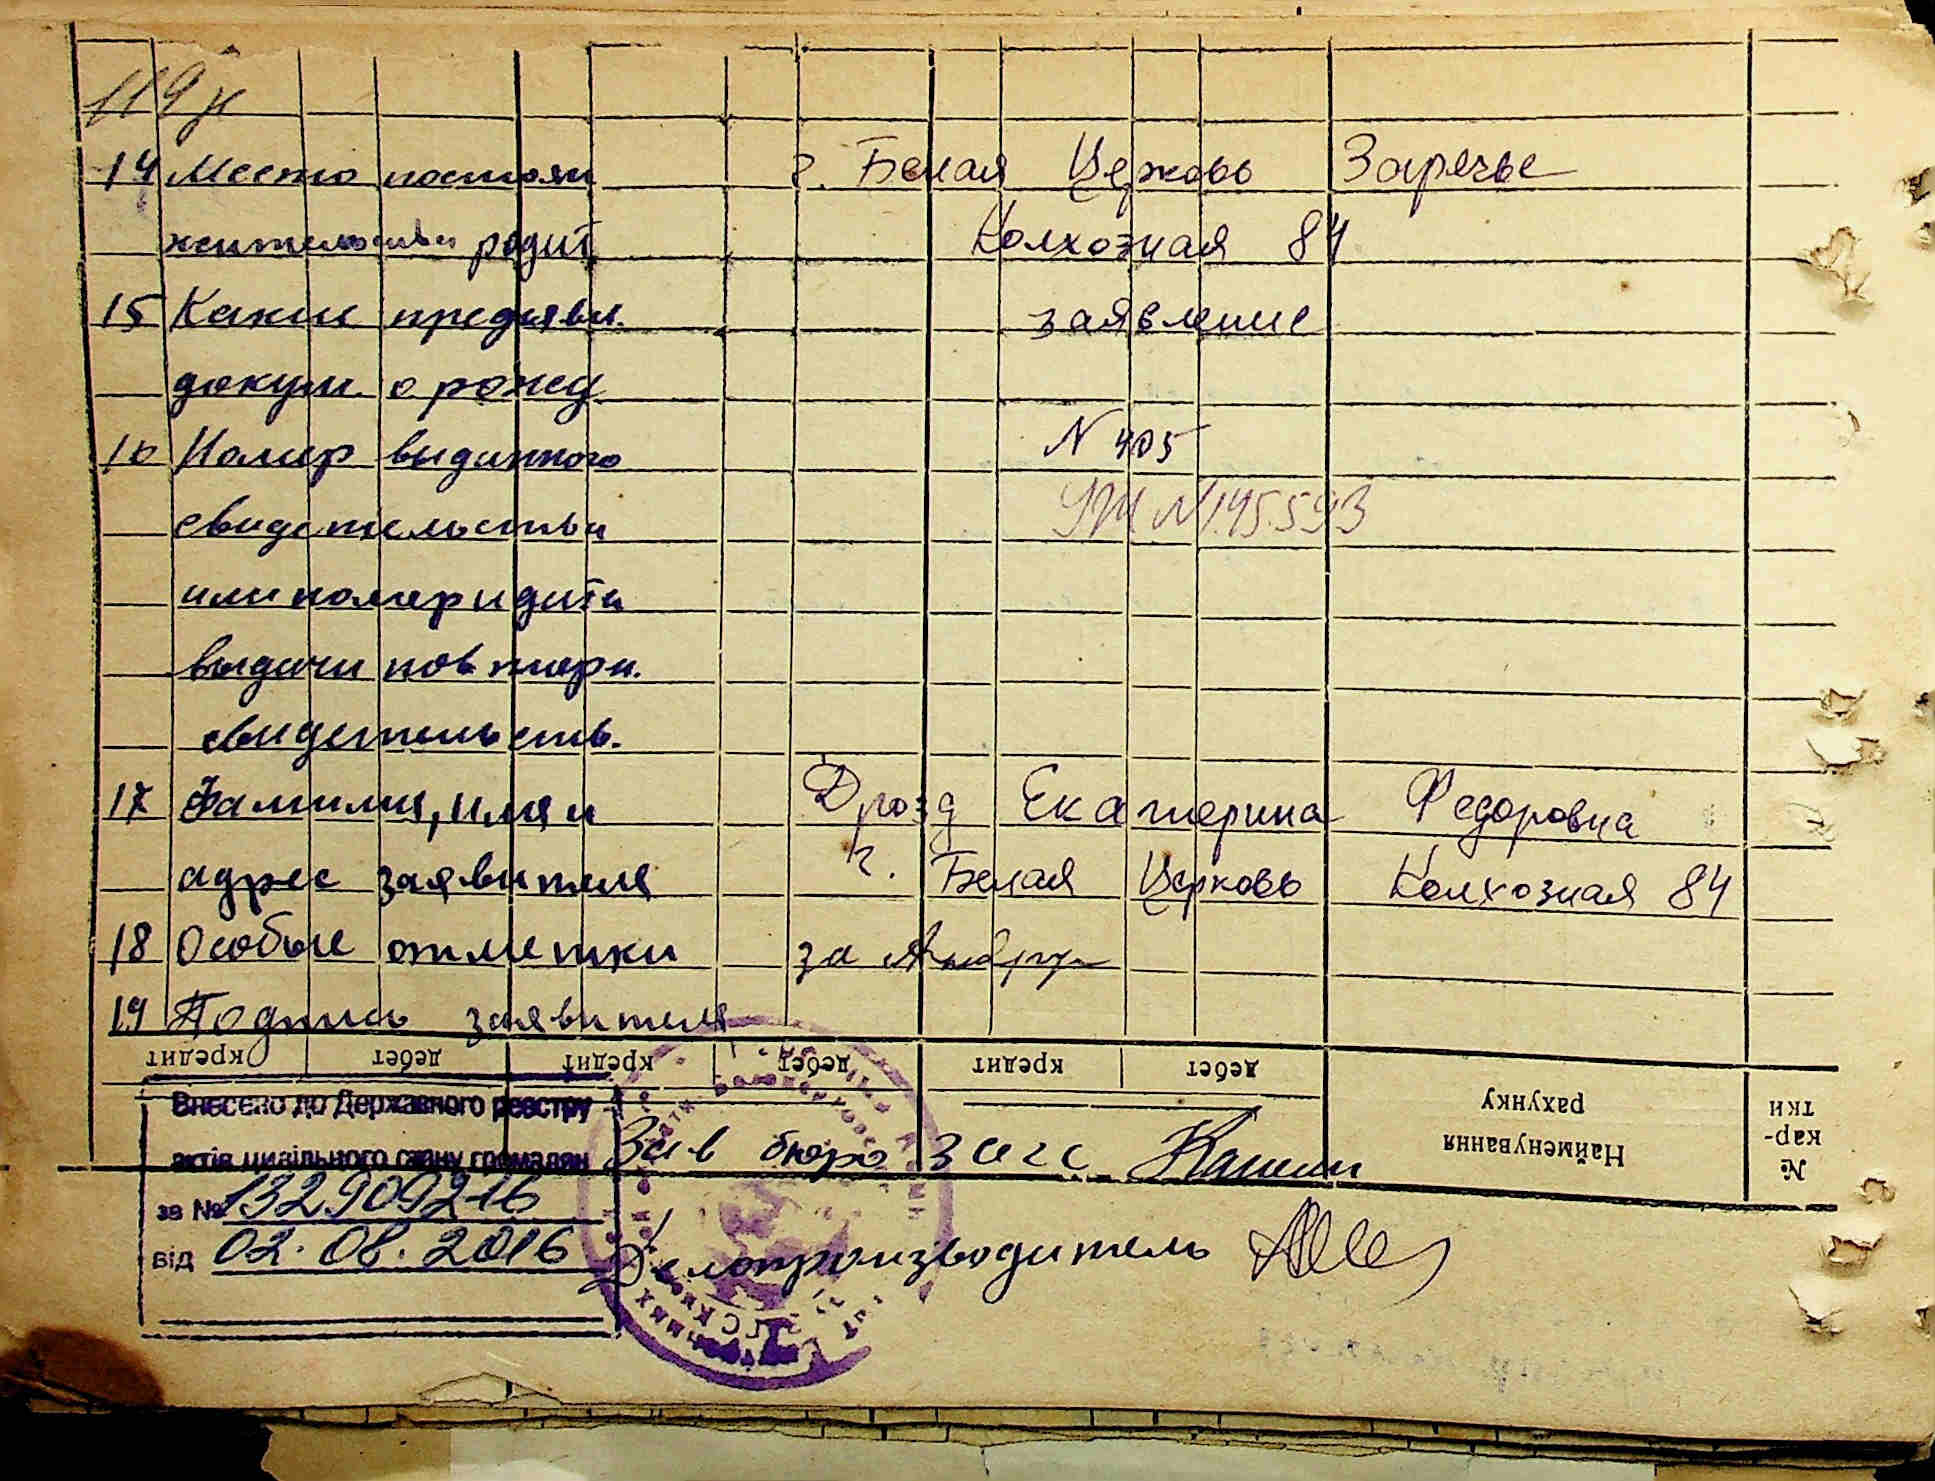 14 Место постоян г. Белая Церковь Заречье
жительства родит Колхозная 84
15 Какие предъявл. заявление
докум. о рожд
16 Номер выданного N 405
свидетельства N 145593
или номер и дата
выдачи повторн.
свидетельств.
17 Фамилия, имя и Дрозд Екатерина Федоровна
адрес заявителя г. Белая Церковь Колхозная 84
18 Особые отметки за
19 Подпись заявителя
кредит дебет кредит дебет кредит дебет
Найменування рахунку
№ кар-тки
Внесено до Державного реєстру
актів цивільного стану громадян
за № 132909216
від 02.08.2016
Зав бюро загс
Делопроизводитель